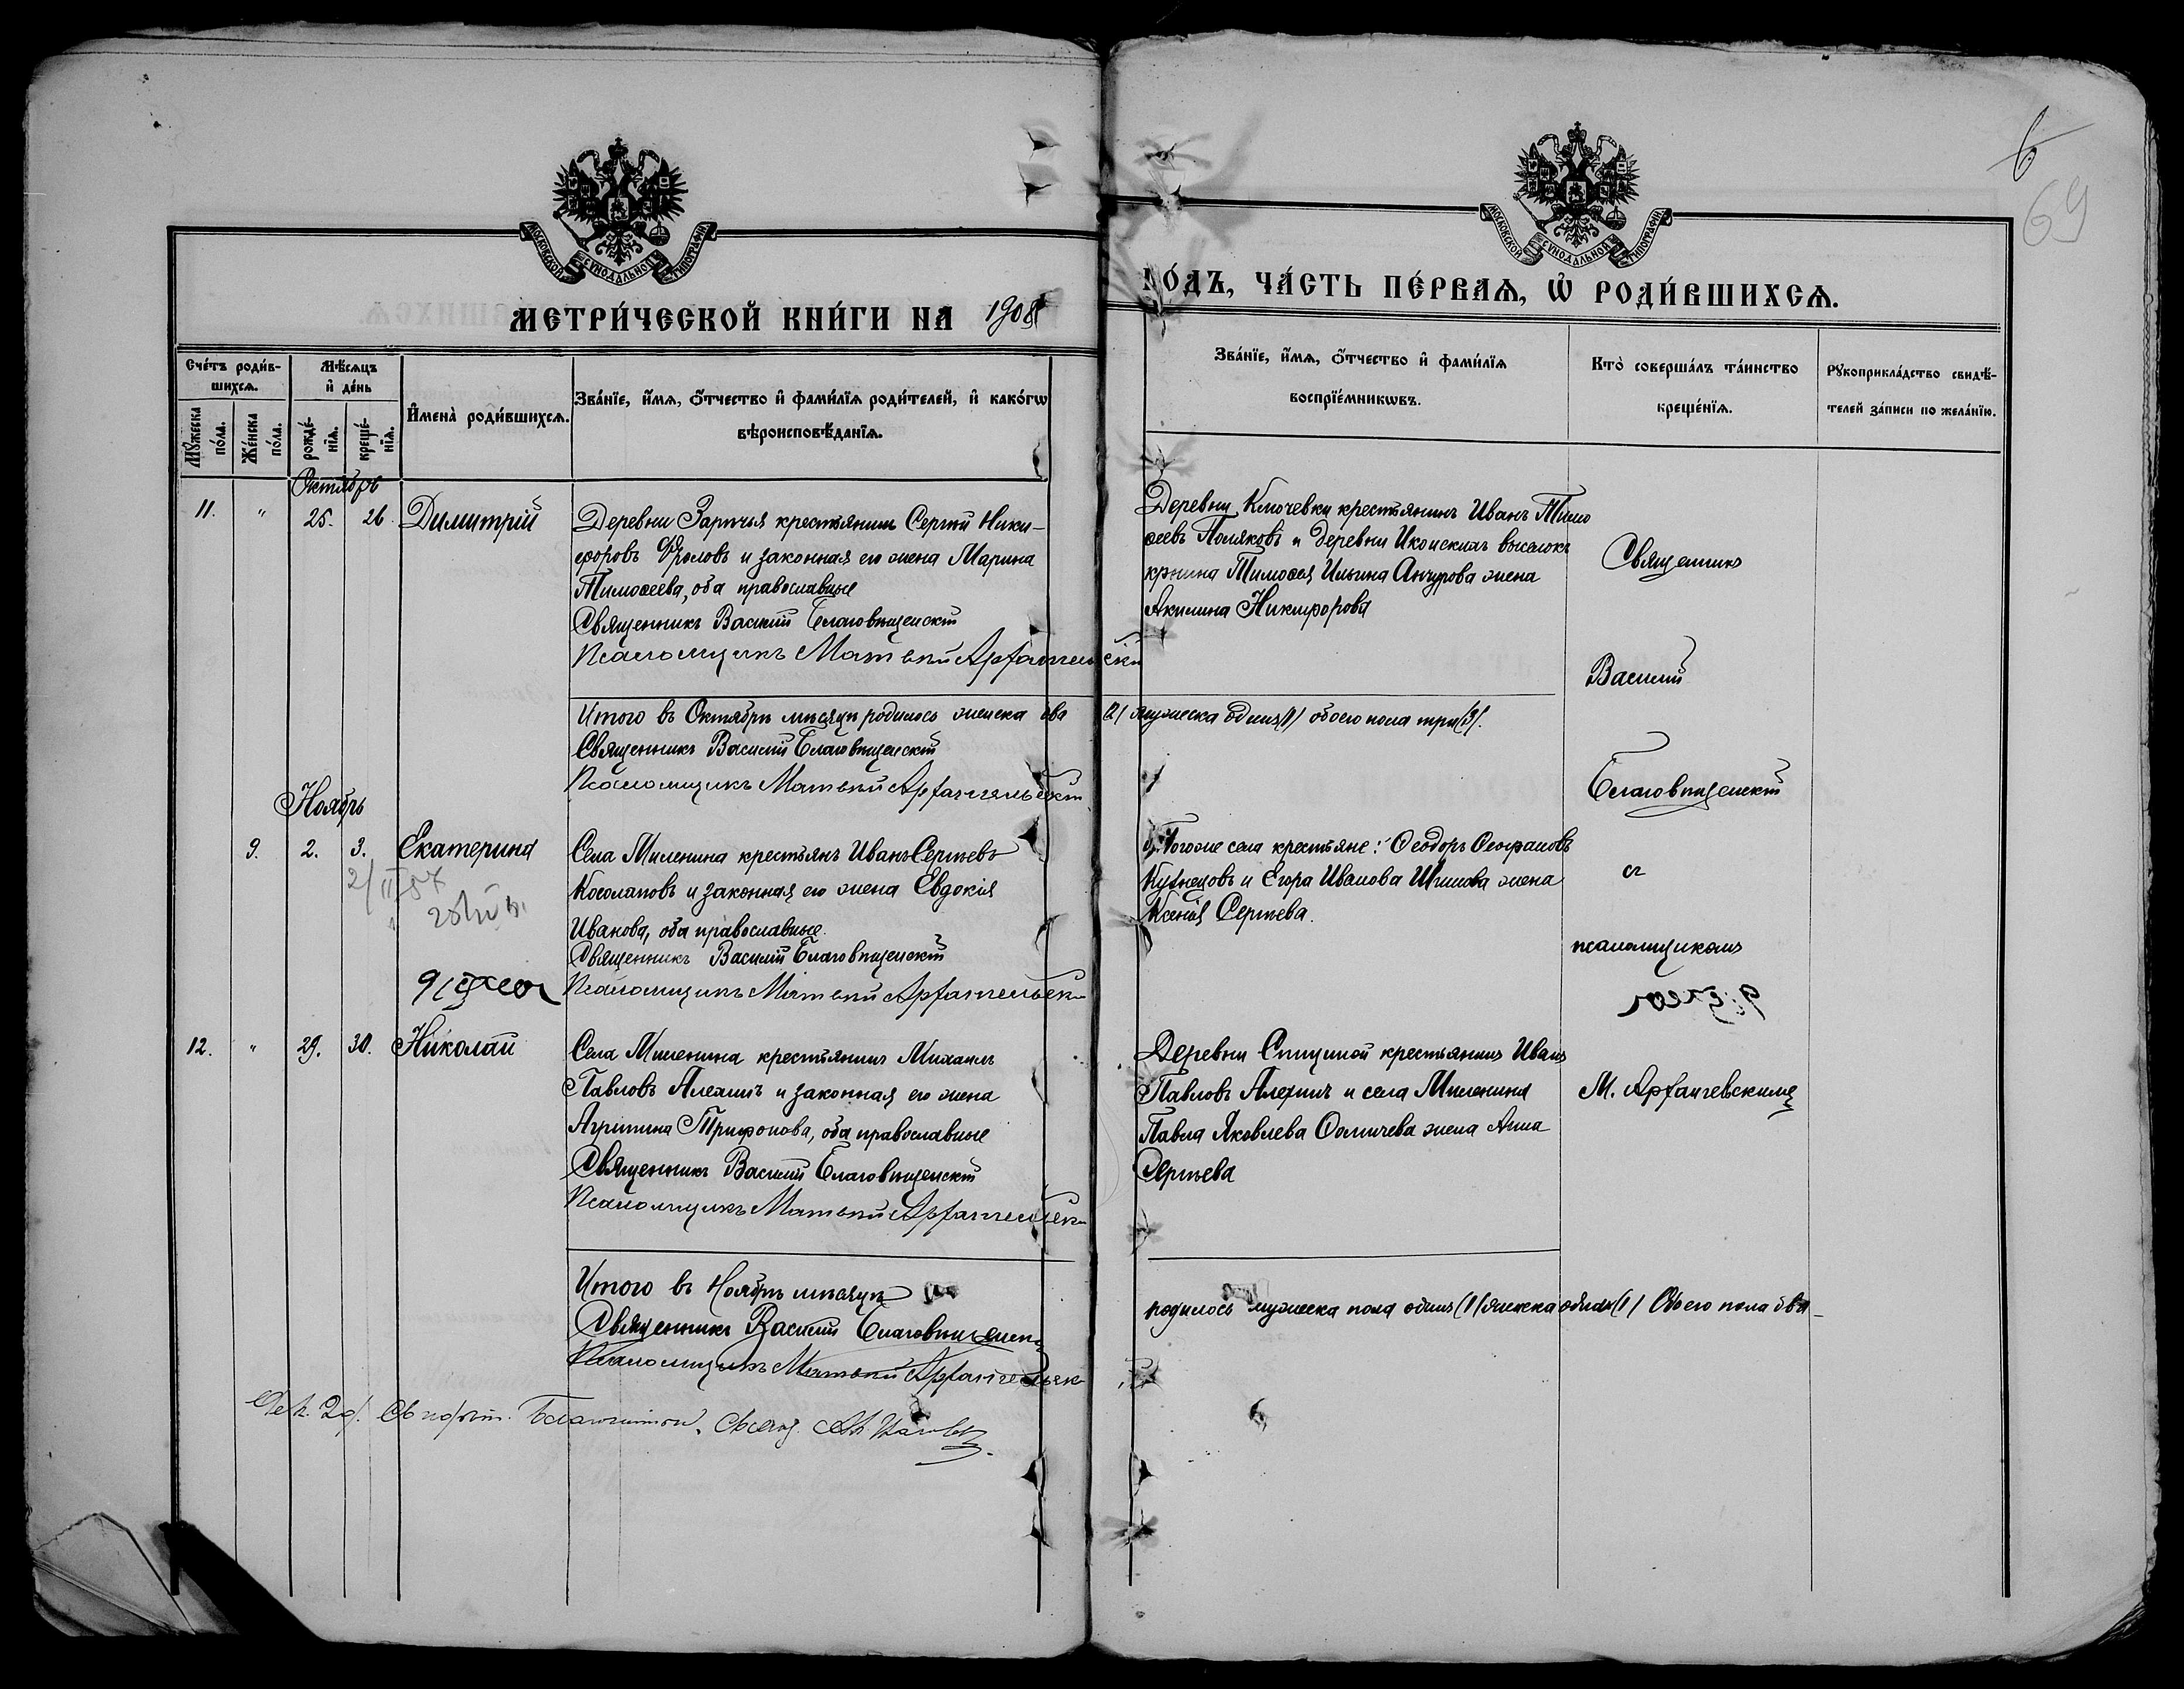 6
69
МОСКОВСКОЙ СѴНОДАЛЬНОЙ ТИПОГРАФІИ
МОСКОВСКОЙ СѴНОДАЛЬНОЙ ТИПОГРАФІИ
МЕТРИ́ЧЕСКОЙ КНИ́ГИ НА 1908
ГО́ДЪ, ЧА́СТЬ ПЕ́РВАѦ, Ѡ҆ РОДИ́ВШИХСѦ.
Сче́тъ роди́в-
шихсѧ.
Мꙋжеска по́ла.
Же́нска по́ла.
Мѣ́сѧцъ
и҆ де́нь
рожде́-нїѧ.
креще́-нїѧ.
И҆мена̀ роди́вшихсѧ.
Зва́нїе, и҆́мѧ, ѻ҆́тчество и҆ фами́лїѧ роди́телей, и҆ како́гѡ
вѣроисповѣ́данїѧ.
Зва́нїе, и҆́мѧ, ѻ҆́тчество и҆ фами́лїѧ
воспрїе́мникѡвъ.
Кто̀ соверша́лъ та́инство
креще́нїѧ.
Рꙋкоприкла́дство свидѣ́-
телей за́писи по жела́нїю.
Октябрь
11. " 25. 26. Димитрій
Деревни Зарѣчья крестьянинъ Сергѣй Ники-
форовъ Фроловъ и законная его жена Марина
Тимоѳеева, оба православные
Священникъ Василій Благовѣщенскій
Псаломщикъ Матвѣй Архангельскій
Деревни Ключевки крестьянинъ Иванъ Тимо
ѳеевъ Поляковъ и деревни выселокъ
крнина Тимоѳея Ильина жена
Акилина Никифорова
Священникъ
Василій
Благовѣщенскій
съ
псаломщикомъ
М. Архангельскимъ
Итого въ Октябрѣ мѣсяцѣ родилось женска два (2) мужеска одинъ (1) обоего пола три (3).
Священникъ Василій Благовѣщенскій
Псаломщикъ Матвѣй Архангельскій
Ноябрь
9. 2. 3. Екатерина
Села Миленина крестьянъ Иванъ Сергѣевъ
Косолаповъ и законная его жена Евдокія
Иванова, оба православные.
Священникъ Василій Благовѣщенскій
Псаломщикъ Матвѣй Архангельскій
Тогоже села крестьяне: Ѳеодоръ Ѳеофановъ
Кузнецовъ и Егора Иванова жена
Ксенія Сергѣева.
12. " 29. 30. Николай
Села Миленина крестьянинъ Михаилъ
Павловъ Алехинъ и законная его жена
Агрипина Трифонова, оба православные
Священникъ Василій Благовѣщенскій
Псаломщикъ Матвѣй Архангельскій
Деревни Спициной крестьянинъ Иванъ
Павловъ Алехинъ и села Миленина
Павла Яковлева жена Анна
Сергѣева
Итого въ Ноябрѣ мѣсяцѣ родилось мужеска пола одинъ (1) женска одна (1) Обоего пола два
Священникъ Василій Благовѣщенскій
Псаломщикъ Матвѣй Архангельскій